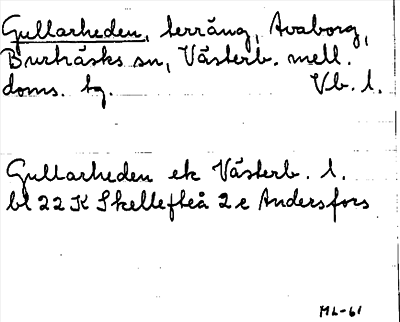 Gullarheden, terräng, Avaborg,
Burträsks sn, Västerb. mell.
doms. tg. Vb. l.
Gullarheden ek Västerb. l.
bl 22 K Skellefteå 2 e Andersfors
ML-61